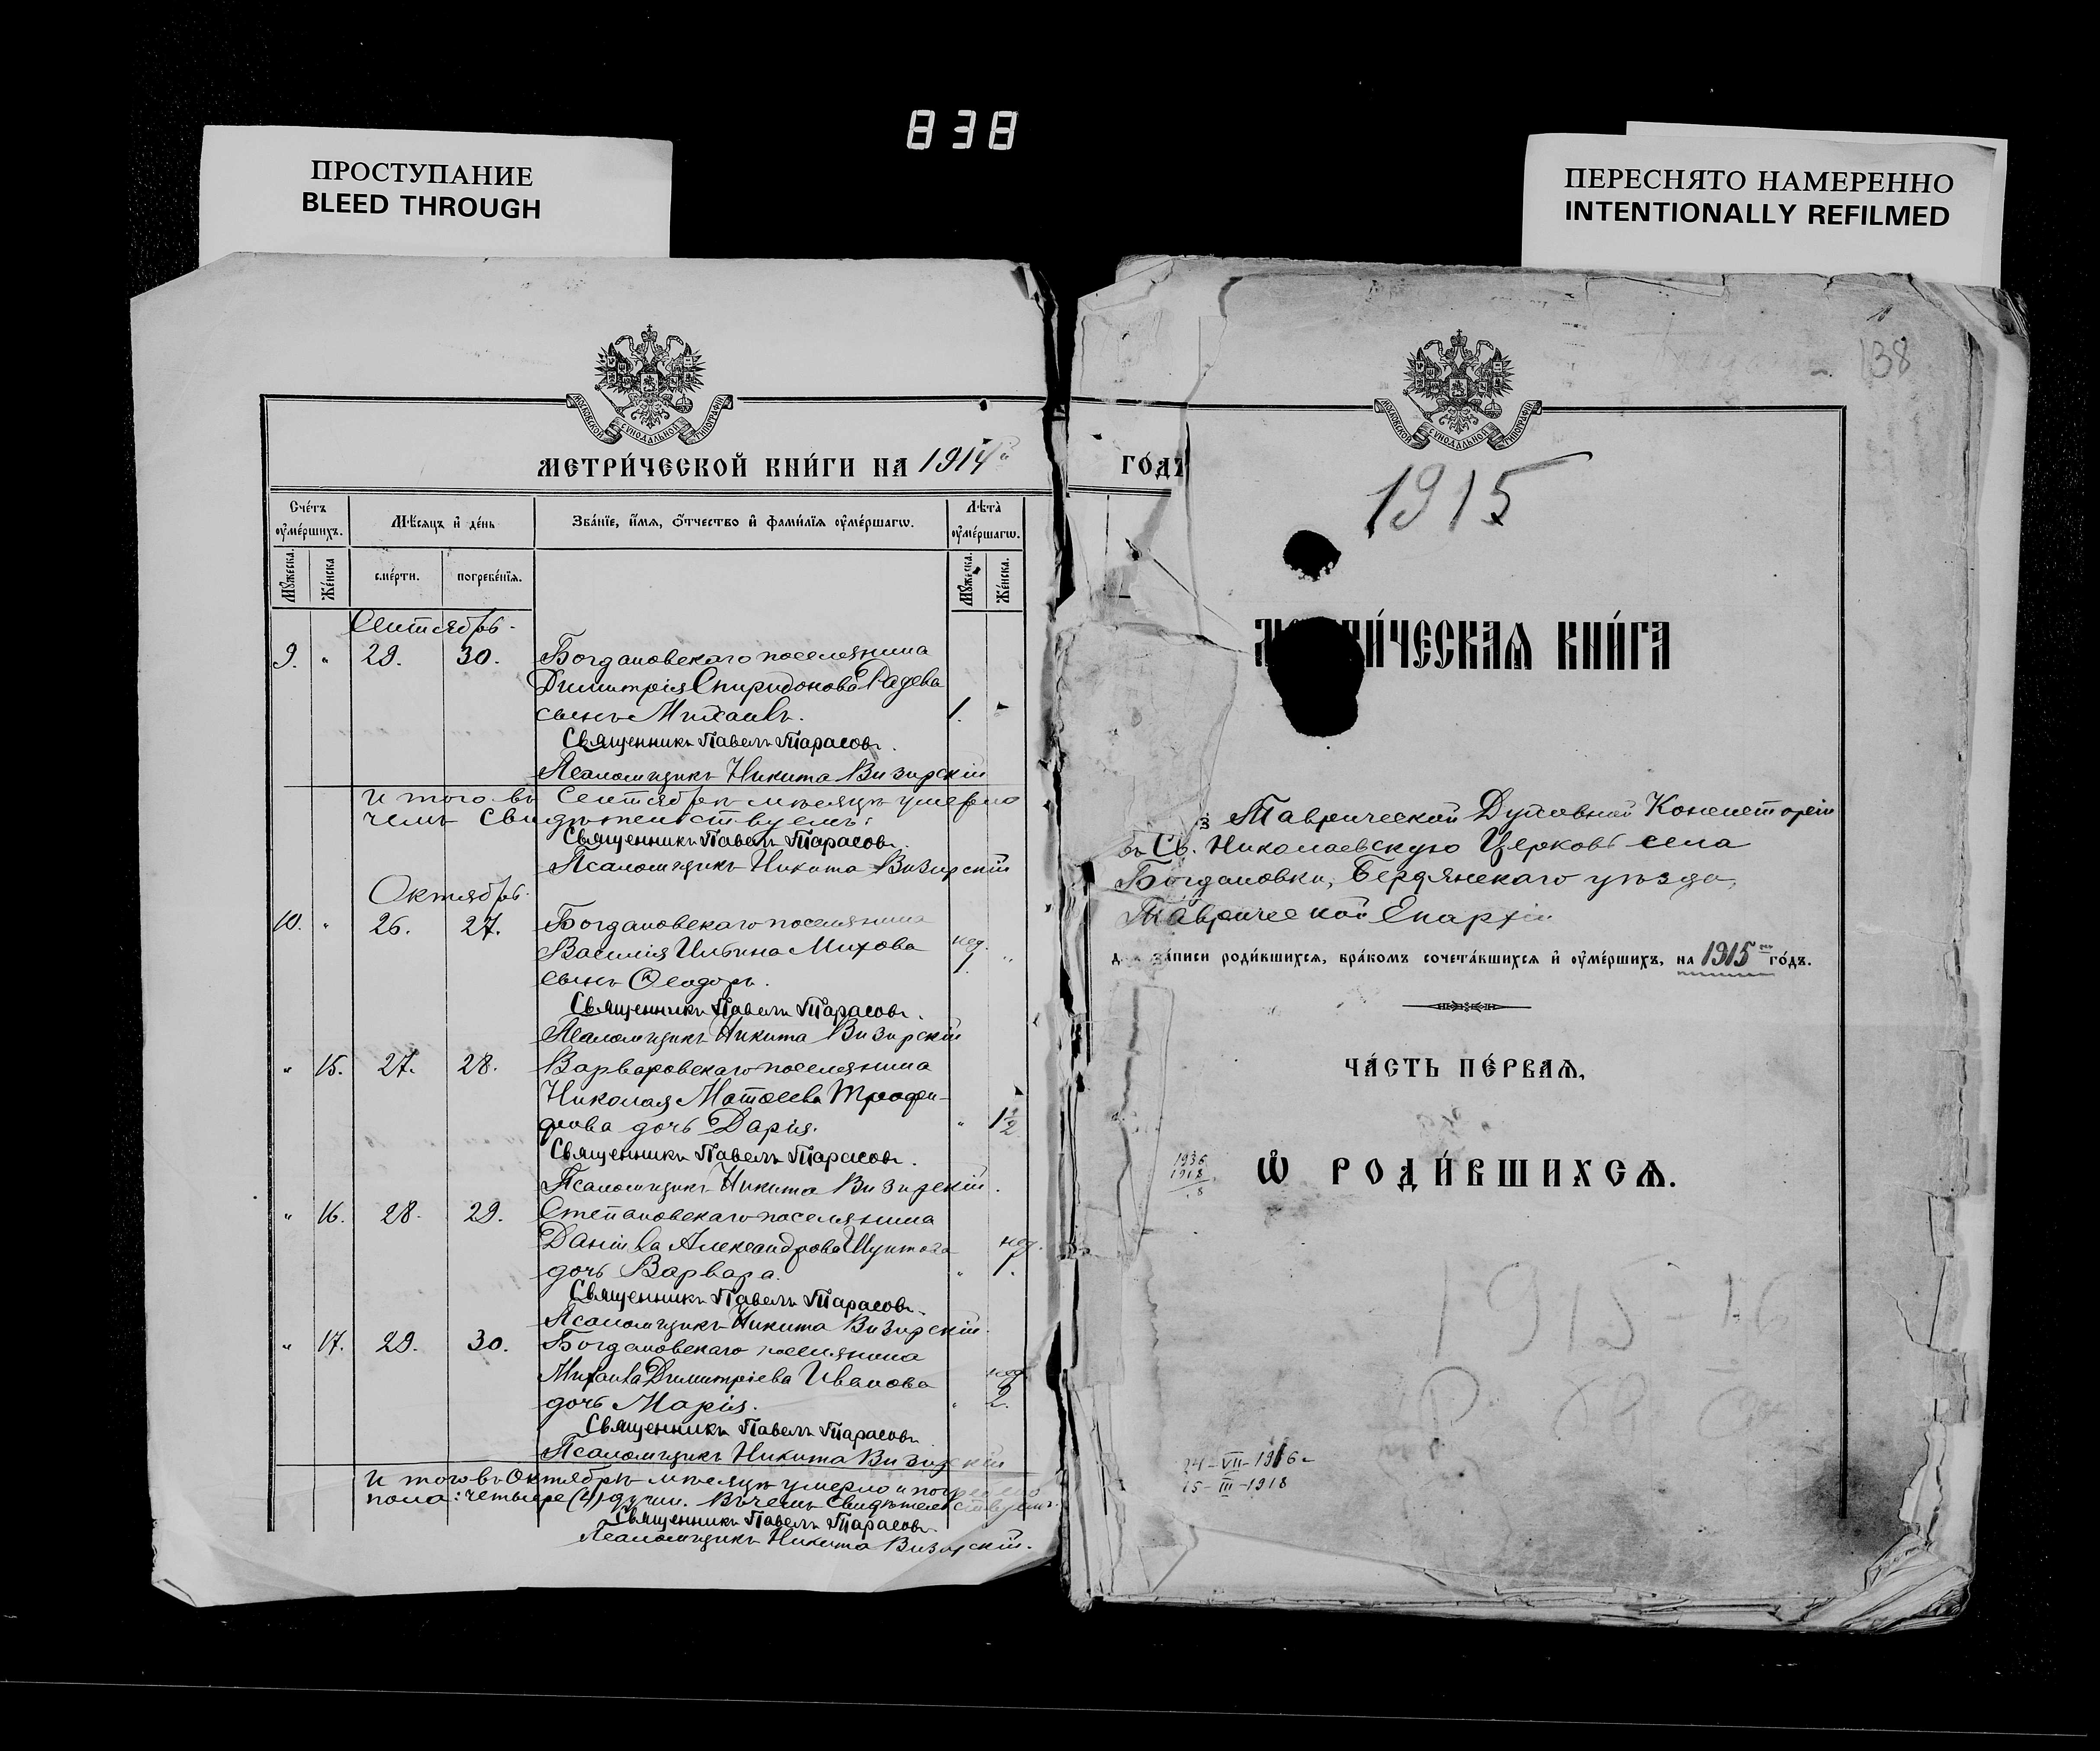 838
ПРОСТУПАНИЕ
BLEED THROUGH
ПЕРЕСНЯТО НАМЕРЕННО
INTENTIONALLY REFILMED
МОСКОВСКОЙ СѴНОДАЛЬНОЙ ТИПОГРАФІИ
МЕТРИ́ЧЕСКОЙ КНИ́ГИ НА 1914й ГО́ДЪ
Сче́тъ ᲂу҆ме́ршихъ.
Мѣ́сяцъ и҆ де́нь
Зва́нїе, и҆́мѧ, ѻ҆́тчество и҆ фами́лїѧ ᲂу҆ме́ршагѡ.
Лѣ́та ᲂу҆ме́ршагѡ.
Мꙋ́жеска. Же́нска
сме́рти. погребе́нїѧ.
Мꙋ́жеска. Же́нска.
Сентябрь.
9. " 29. 30. Богдановскаго поселянина
Димитрія Спиридонова Радева
сынъ Михаилъ. 1.
Священникъ Павелъ Тарасовъ.
Псаломщикъ Никита Визирскій
И того въ Сентябрѣ мѣсяцѣ умерло
чемъ свидѣтельствуемъ:
Священникъ Павелъ Тарасовъ.
Псаломщикъ Никита Визирскій
Октябрь.
10. " 26. 27. Богдановскаго поселянина
Василія Ильина Михова нед.
сынъ Ѳеодоръ. 1. "
Священникъ Павелъ Тарасовъ.
Псаломщикъ Никита Визирскій
" 15. 27. 28. Варваровскаго поселянина
Николая Матѳеева
дочь Дарія. " 1½
Священникъ Павелъ Тарасовъ.
Псаломщикъ Никита Визирскій.
" 16. 28. 29. Степановскаго поселянина
Даніила Александрова нед.
дочь Варвара. " 1.
Священникъ Павелъ Тарасовъ.
Псаломщикъ Никита Визирскій.
" 17. 29. 30. Богдановскаго поселянина
Михаила Димитріева Иванова нед.
дочь Марія. " 2.
Священникъ Павелъ Тарасовъ
Псаломщикъ Никита Визирскій
И того въ Октябрѣ мѣсяцѣ умерло и погребено
пола: четыре (4) души. Въ чемъ свидѣтельствуемъ:
Священникъ Павелъ Тарасовъ.
Псаломщикъ Никита Визирскій.
138
МОСКОВСКОЙ СѴНОДАЛЬНОЙ ТИПОГРАФІИ
1915
МЕТРИ́ЧЕСКАѦ КНИ́ГА
Таврической Духовной Консисторіи
въ Св. Николаевскую Церковь села
Богдановки, Бердянскаго уѣзда,
Таврической Епархіи
за́писи роди́вшихсѧ, бра́комъ сочета́вшихсѧ и҆ ᲂу҆ме́ршихъ, на 1915 го́дъ.
ЧА́СТЬ ПЕ́РВАѦ,
Ѡ҆ РОДИ́ВШИХСѦ.
1936
1918
1915-16
24-VII-1916
15-III-1918